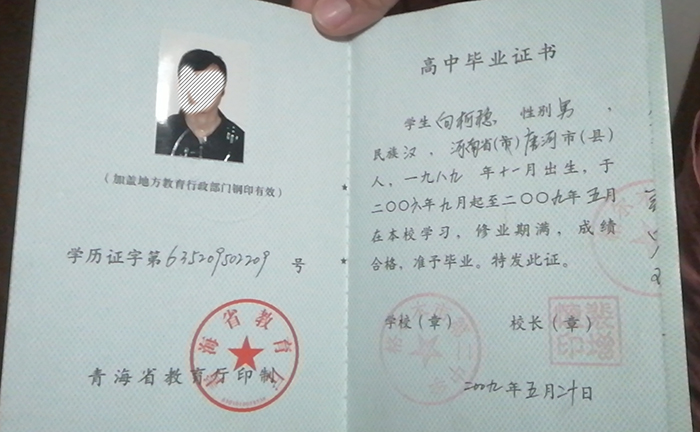 （加盖地方教育行政部门钢印有效）
学历证字第635209502209 号
青海省教育厅印制
青海省教育厅
高中毕业证书
学生向柯穗，性别男，
民族汉，河南省(市)唐河市(县)
人，一九八九年十一月出生，于
二〇〇六年九月起至二〇〇九年五月
在本校学习，修业期满，成绩
合格，准予毕业。特发此证。
学校（章） 校长（章）
二〇〇九年五月二十日